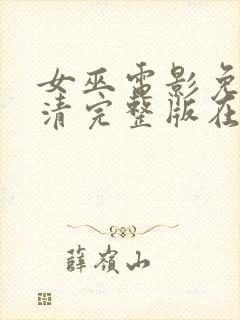 女巫电影免
清完整版在
薛岭山